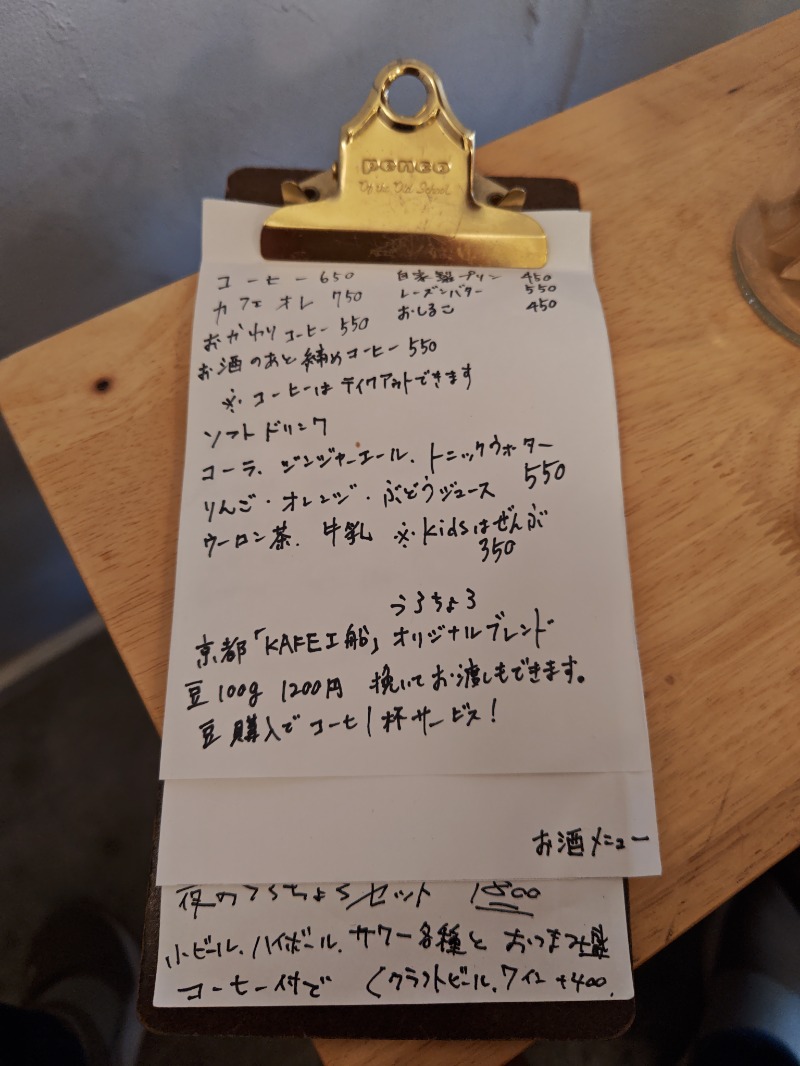 penco
Of the Old School
コーヒー 650
カフェオレ 750
おかわりコーヒー 550
お酒のあと締めコーヒー 550
※コーヒーはテイクアウトできます
自家製プリン 450
レーズンバター 550
おしるこ 450
ソフトドリンク
コーラ、ジンジャーエール、トニックウォーター
りんご・オレンジ・ぶどうジュース 550
ウーロン茶、牛乳 ※kidsはぜんぶ
350
うろちょろ
京都「KAFE工船」オリジナルブレンド
豆100g 1200円 挽いてお渡しもできます。
豆購入でコーヒ1杯サービス!
お酒メニュー
夜のうろちょろセット 1800
小ビール、ハイボール、サワー各種とおつまみ
コーヒー付で (クラフトビール、ワイン +400.